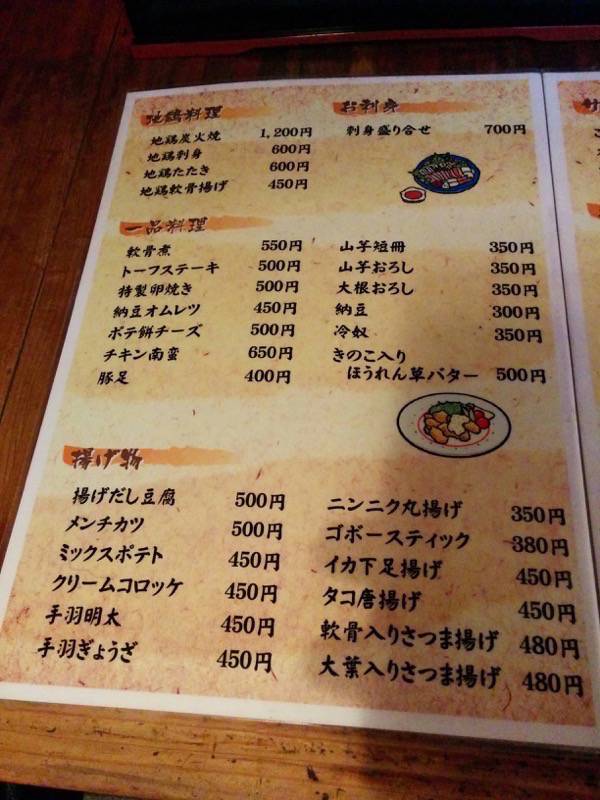 地鶏料理
地鶏炭火焼 1,200円
地鶏刺身 600円
地鶏たたき 600円
地鶏軟骨揚げ 450円
お刺身
刺身盛り合せ 700円
一品料理
軟骨煮 550円
トーフステーキ 500円
特製卵焼き 500円
納豆オムレツ 450円
ポテ餅チーズ 500円
チキン南蛮 650円
豚足 400円
山芋短冊 350円
山芋おろし 350円
大根おろし 350円
納豆 300円
冷奴 350円
きのこ入り
ほうれん草バター 500円
揚げ物
揚げだし豆腐 500円
メンチカツ 500円
ミックスポテト 450円
クリームコロッケ 450円
手羽明太 450円
手羽ぎょうざ 450円
ニンニク丸揚げ 350円
ゴボースティック 380円
イカ下足揚げ 450円
タコ唐揚げ 450円
軟骨入りさつま揚げ 480円
大葉入りさつま揚げ 480円
サ